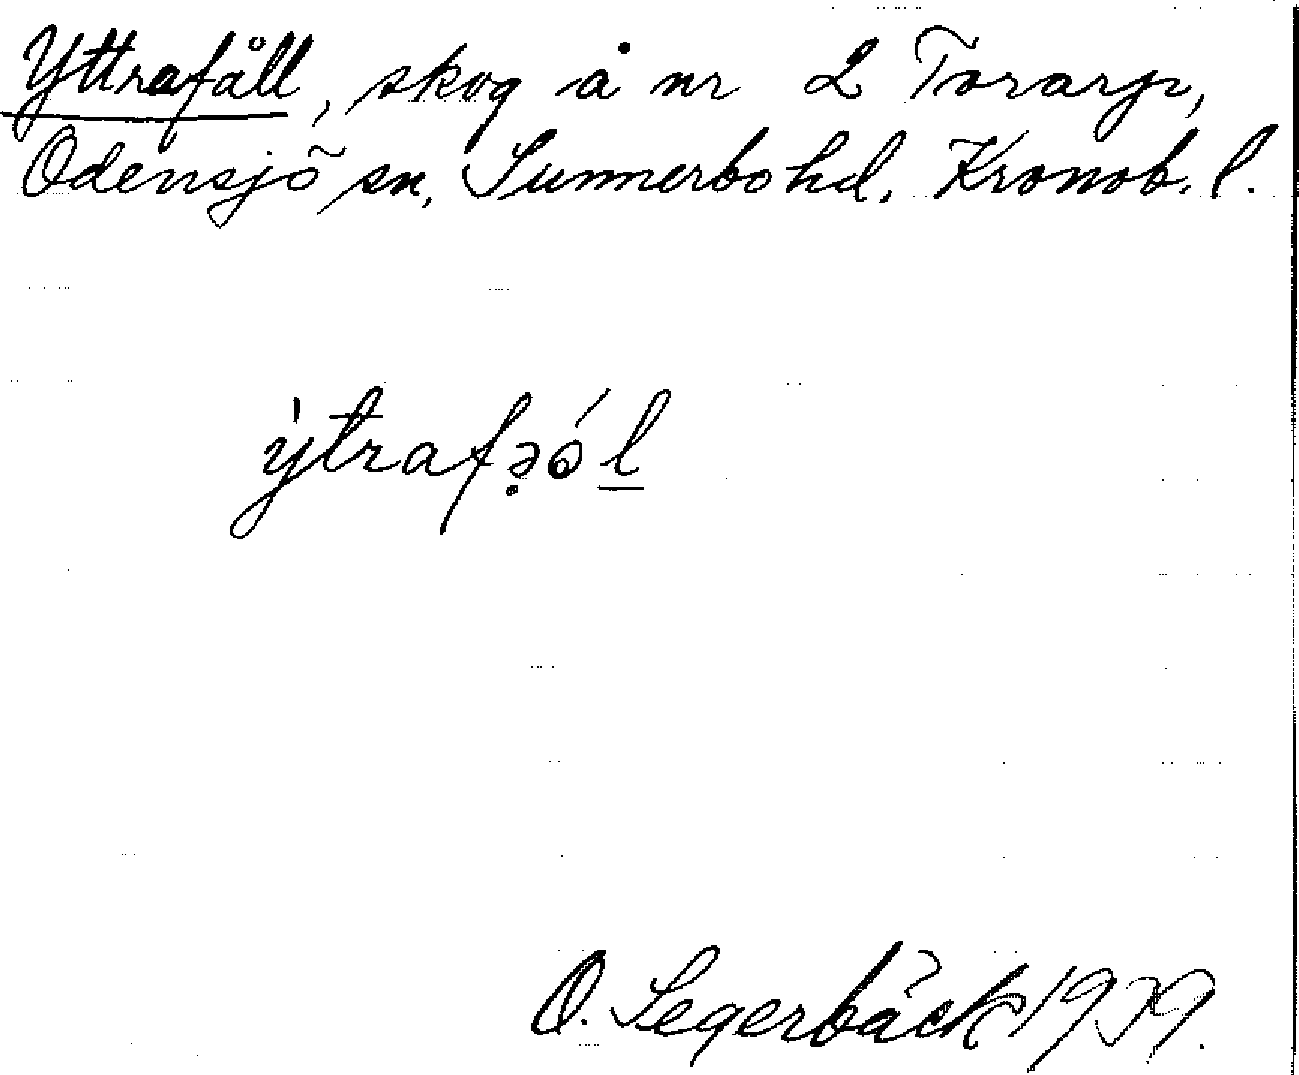 Yttrafåll, skog å nr 2 Torarp,
Odensjö sn, Sunnerbo hd. Kronob. l.
ỳtrafə̣ól̲
O. Segerbäck 1939.